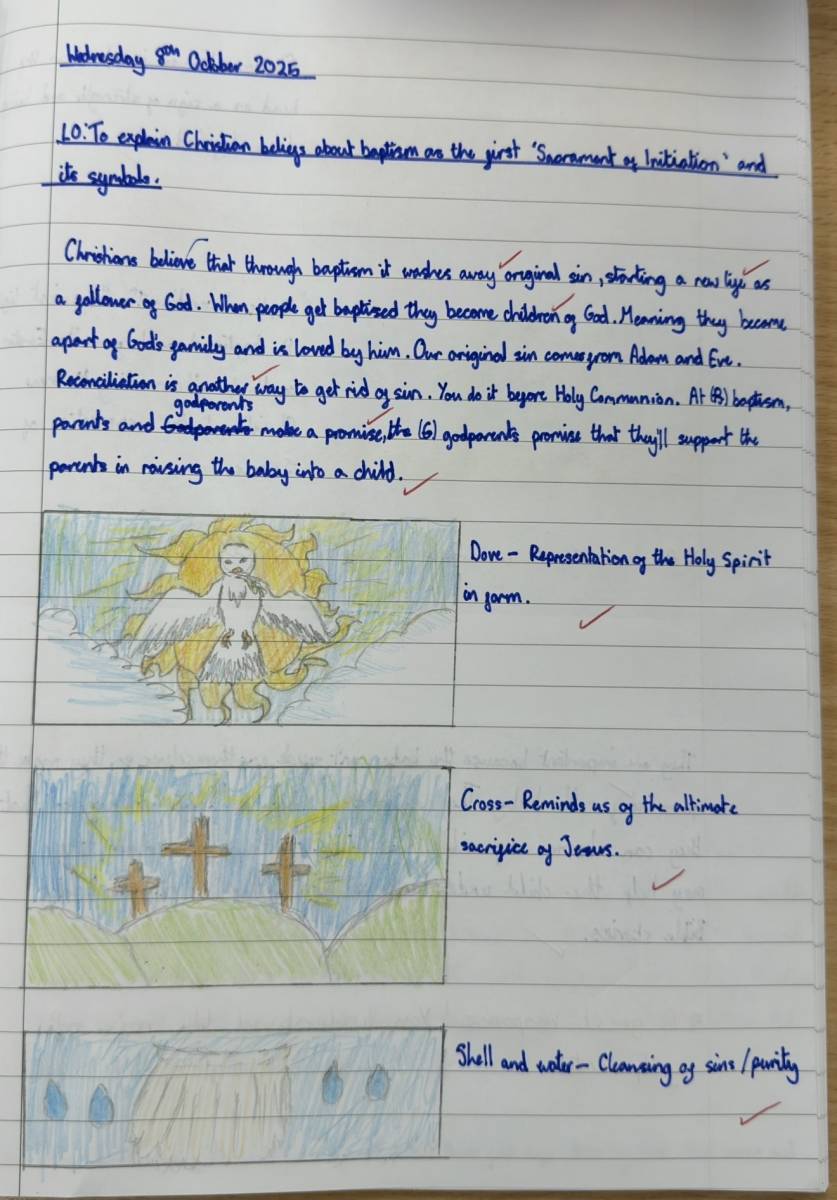 Wednesday 8th October 2025
LO: To explain Christian beliefs about baptism as the first 'Sacrament of Initiation' and
its symbols.
Christians believe that through baptism it washes away original sin, starting a new life as
a follower of God. When people get baptised they become children of God. Meaning they become
apart of God's family and is loved by him. Our original sin comes from Adam and Eve.
Reconciliation is another way to get rid of sin. You do it before Holy Communion. At (B) baptism,
godparents
parents and Godparents make a promise, the (G) godparents promise that they'll support the
parents in raising the baby into a child.
Dove - Representation of the Holy Spirit
in form.
Cross - Reminds us of the altimate
sacrifice of Jesus.
Shell and water - Cleansing of sins / purity